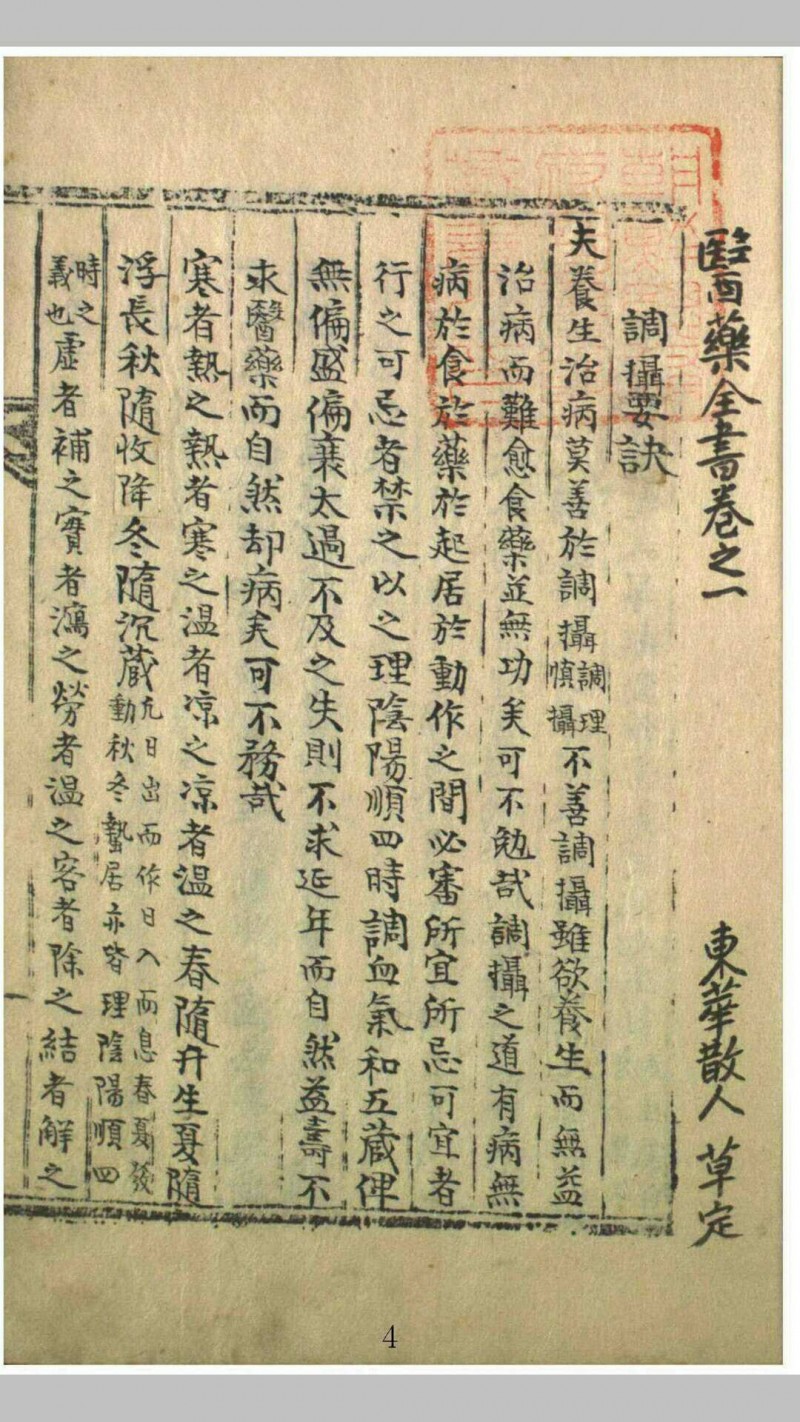 醫藥全書卷之一 東華散人 草定
調攝要訣
夫養生治病莫善於調攝調理慎攝不善調攝雖欲養生而無益
治病而難愈食藥並無功矣可不勉哉調攝之道有病無
病於食於藥於起居於動作之間必審所宜所忌可宜者
行之可忌者禁之以之理陰陽順四時調血氣和五藏俾
無偏盛偏衰太過不及之失則不求延年而自然益壽不
求醫藥而自然却病矣可不務哉
寒者熱之熱者寒之温者凉之凉者温之春隨升生夏隨
浮長秋隨收降冬隨沉藏凢日出而作日入而息春夏發動秋冬蟄居亦皆理陰陽順四
時之義也虛者補之實者瀉之勞者温之客者除之結者解之
4